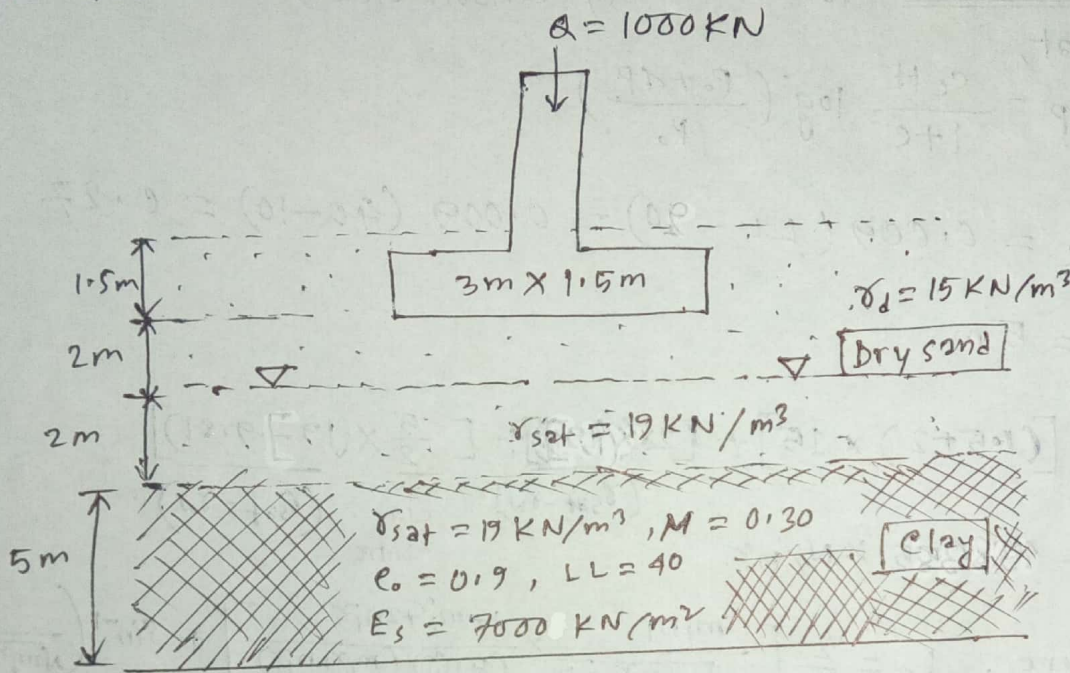 Q = 1000KN
1.5m
3m X 1.5m
γd = 15 KN/m³
2m
Dry sand
2m
γsat = 19 KN/m³
5m
γsat = 19 KN/m³, M = 0.30
Clay
e₀ = 0.9, LL = 40
Es = 7000 KN/m²